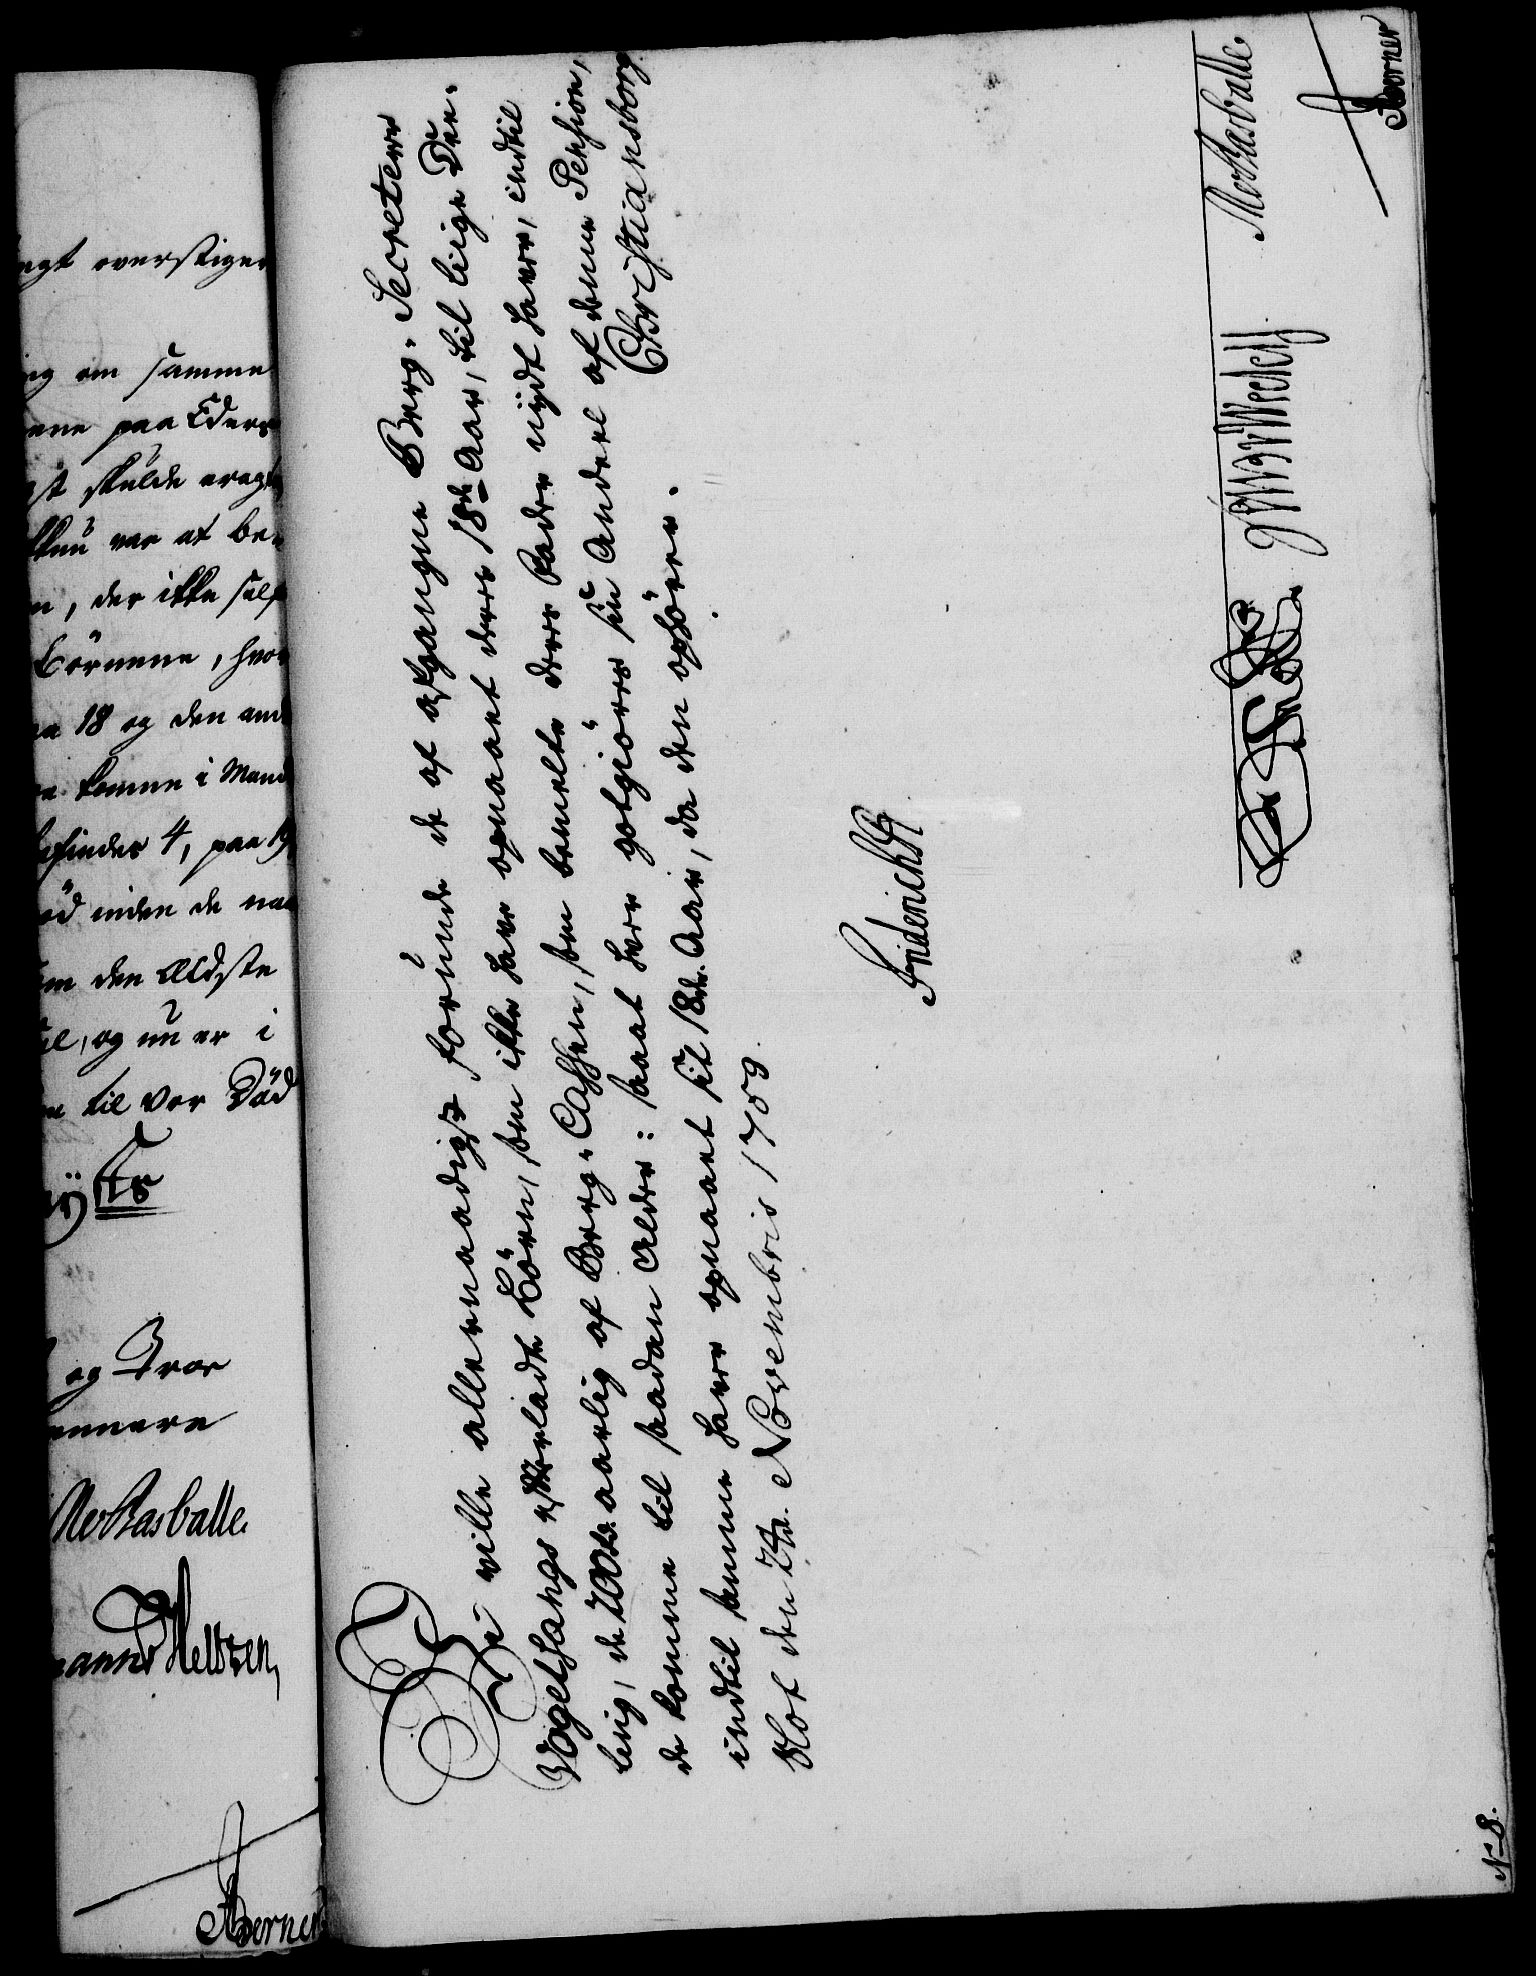 egt overstiger
ng om samme
ene paa Eders
st skulde erag
nu var at be
n, der ikke self
Börnene, hvor
18 og den and
komme i Mand
findes 4, paa 19
öd inden de naa
om den Ældste
og nu er i
til vor Död
og Troe
Moltasballe.
Heltzen,
Bornen
Vi ville allernaadigst forunde de af afgangne Berg-Secreterer
Vogelsangs efterladte Börn, som ikke have opnaaet deres 18de Aar, til liige Dee-
ling, de 200 rd. aarlig af Berg-Cassen, som bemelte deres Fader nydt haver, indtil
de komme til saadan Alder: saat hver godgiöres sin Andeel af denne Pension,
indtil samme haver opnaaet sit 18de Aar, da den ophörer. Christiansborg
Slot den 24de Novembris 1759.
Friderich
Moltasballe.
Borner
N 8.